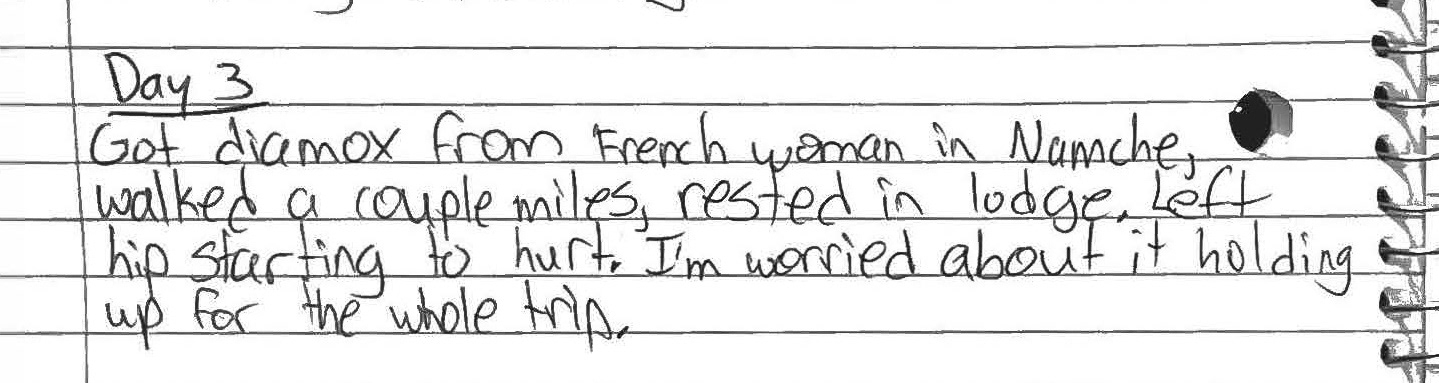 Day 3
Got diamox from French woman in Namche,
walked a couple miles, rested in lodge. Left
hip starting to hurt. I'm worried about it holding
up for the whole trip.